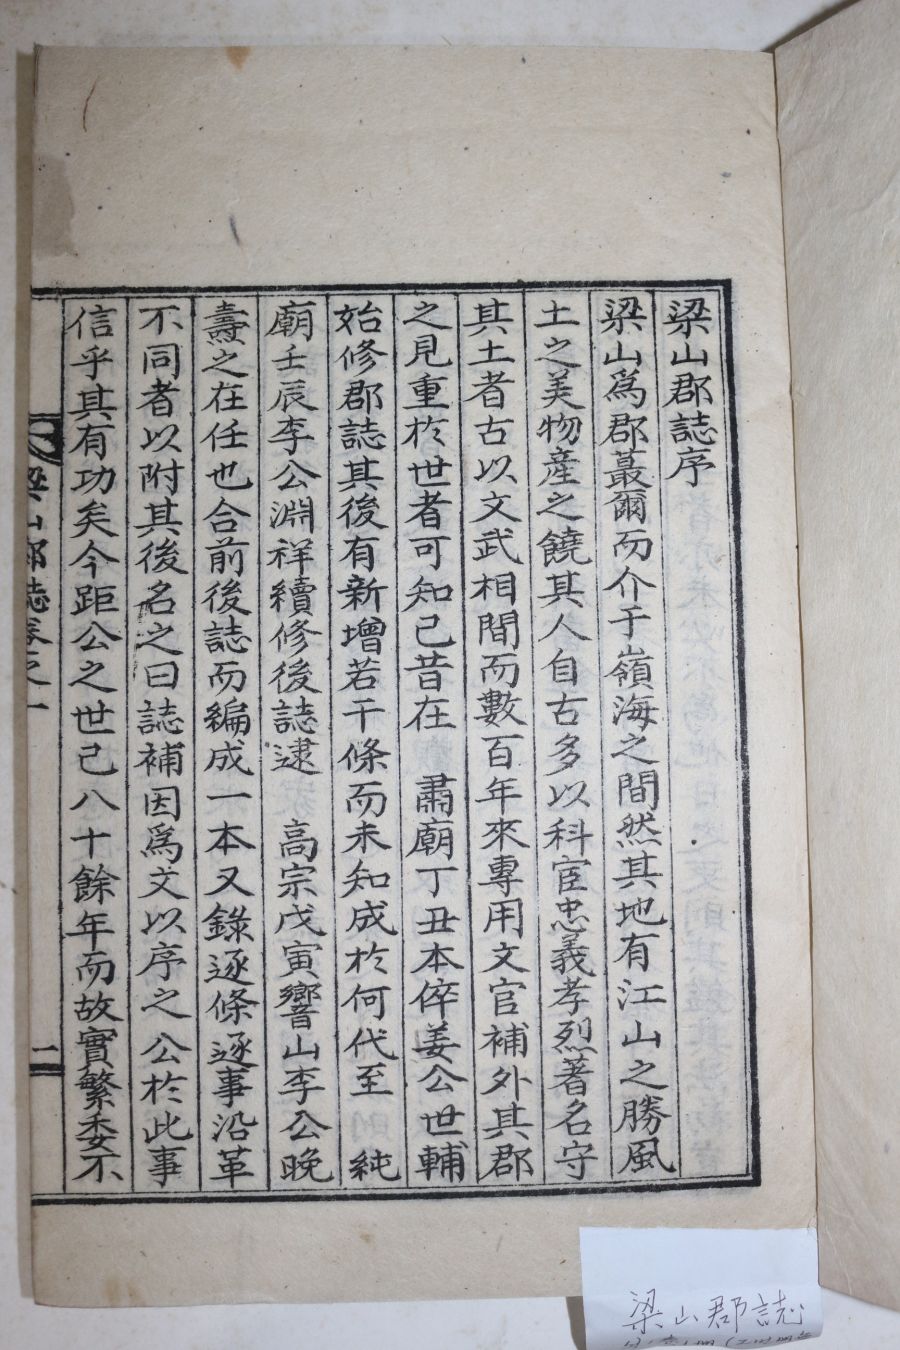 梁山郡誌序
梁山爲郡蕞爾而介于嶺海之間然其地有江山之勝風
土之美物産之饒其人自古多以科宦忠義孝烈著名守
其土者古以文武相間而數百年來專用文官補外其郡
之見重於世者可知已昔在 肅廟丁丑本倅姜公世輔
始修郡誌其後有新增若干條而未知成於何代至 純
廟壬辰李公淵祥續修後誌逮 高宗戊寅響山李公晩
燾之在任也合前後誌而編成一本又錄逐條逐事沿革
不同者以附其後名之曰誌補因爲文以序之公於此事
信乎其有功矣今距公之世已八十餘年而故實繁委不
梁山郡誌卷之一
二
梁山郡誌